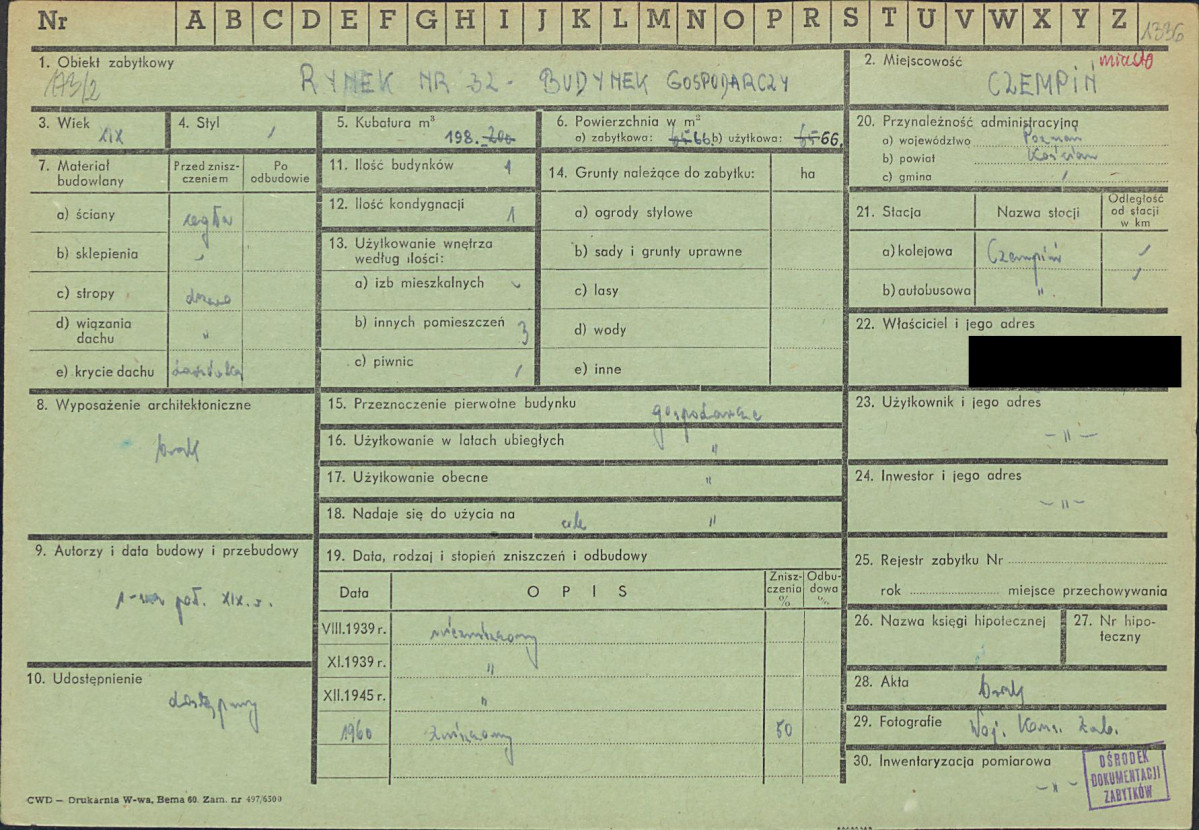 Nr A B C D E F G H I J K L M N O P R S T U V W X Y Z 1336
1. Obiekt zabytkowy
173/2
RYNEK NR 32 - BUDYNEK GOSPODARCZY
2. Miejscowość miasto
CZEMPIŃ
3. Wiek XIX
4. Styl
5. Kubatura m³ 198. 200
6. Powierzchnia w m²
a) zabytkowa: 65 66 b) użytkowa: 65 66.
20. Przynależność administracyjna
a) województwo Poznań
b) powiat Kościan
c) gmina
7. Materiał budowlany
Przed zniszczeniem
Po odbudowie
a) ściany cegła
b) sklepienia
c) stropy drewno
d) wiązania dachu "
e) krycie dachu dachówka
11. Ilość budynków 1
12. Ilość kondygnacji 1
13. Użytkowanie wnętrza
według ilości:
a) izb mieszkalnych -
b) innych pomieszczeń 3
c) piwnic
14. Grunty należące do zabytku: ha
a) ogrody stylowe
b) sady i grunty uprawne
c) lasy
d) wody
e) inne
21. Stacja
Nazwa stacji
Odległość od stacji w km
a) kolejowa Czempiń
b) autobusowa "
22. Właściciel i jego adres
8. Wyposażenie architektoniczne
brak
15. Przeznaczenie pierwotne budynku gospodarcze
16. Użytkowanie w latach ubiegłych "
17. Użytkowanie obecne "
18. Nadaje się do użycia na cele "
23. Użytkownik i jego adres
- " -
24. Inwestor i jego adres
- " -
9. Autorzy i data budowy i przebudowy
1-sza poł. XIX. w.
19. Data, rodzaj i stopień zniszczeń i odbudowy
Data OPIS Zniszczenia % Odbudowa %
VIII.1939 r. niezniszczony
XI.1939 r. "
XII.1945 r. "
1960 zniszczony 50
25. Rejestr zabytku Nr
rok miejsce przechowywania
26. Nazwa księgi hipotecznej
27. Nr hipoteczny
10. Udostępnienie
dostępny
28. Akta brak
29. Fotografie Woj. Kons. Zab.
30. Inwentaryzacja pomiarowa
- " -
OŚRODEK
DOKUMENTACJI
ZABYTKÓW
CWD — Drukarnia W-wa, Bema 60. Zam. nr 497/6500